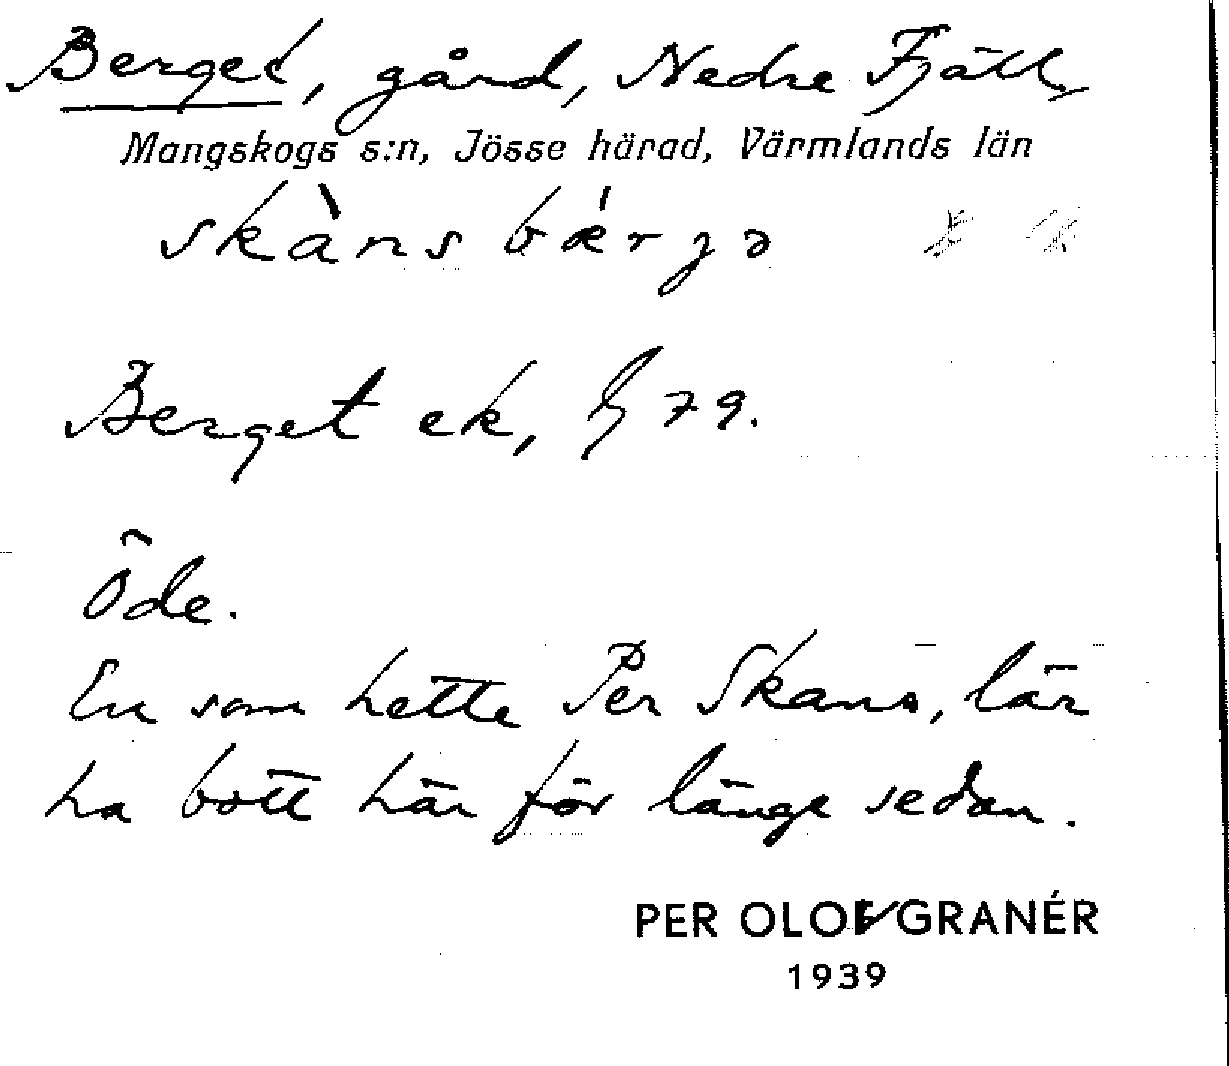 Berget, gård, Nedre Fjäll,
Mangskogs s:n, Jösse härad, Värmlands län
skàns bǽrjə
Berget ek, 79.
Öde.
En som hette Per Skans, lär
ha bott här för länge sedan.
PER OLOF GRANÉR
1939